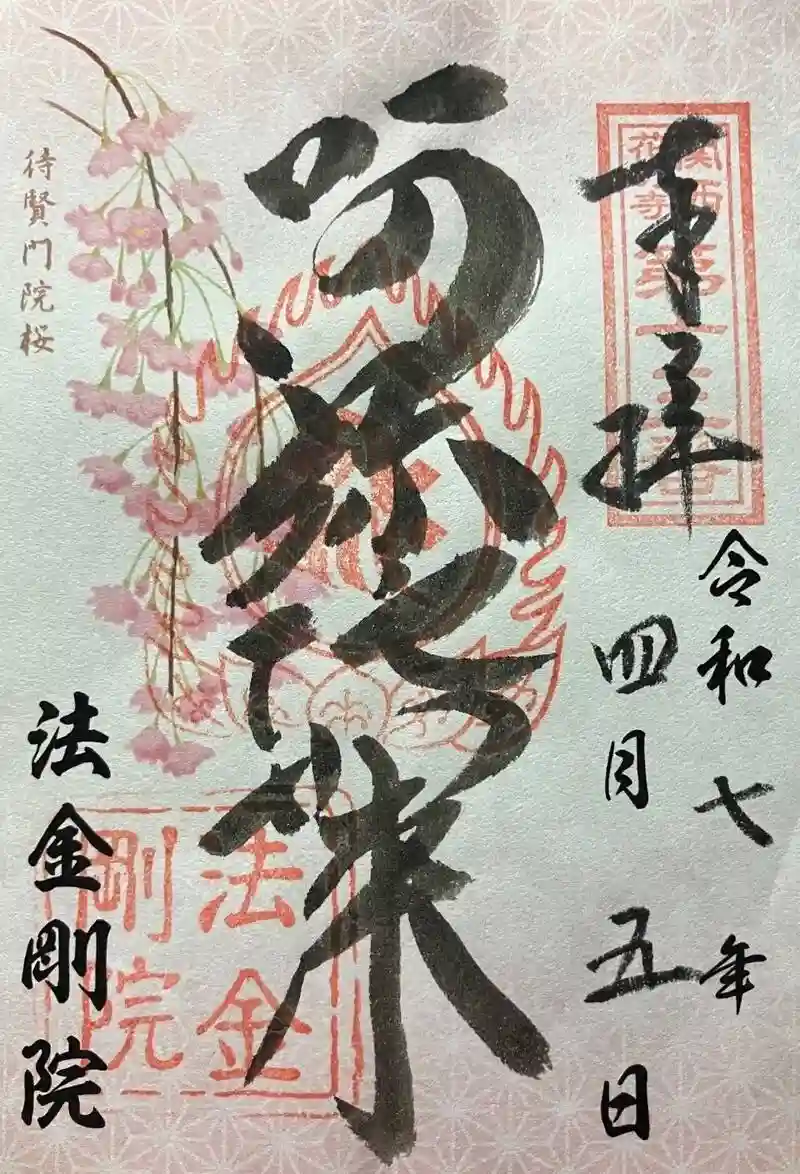 関西
花の寺
第十三番
奉拝
令和七年
四月五日
阿弥陀如来
法金
剛院
待賢門院桜
法金剛院